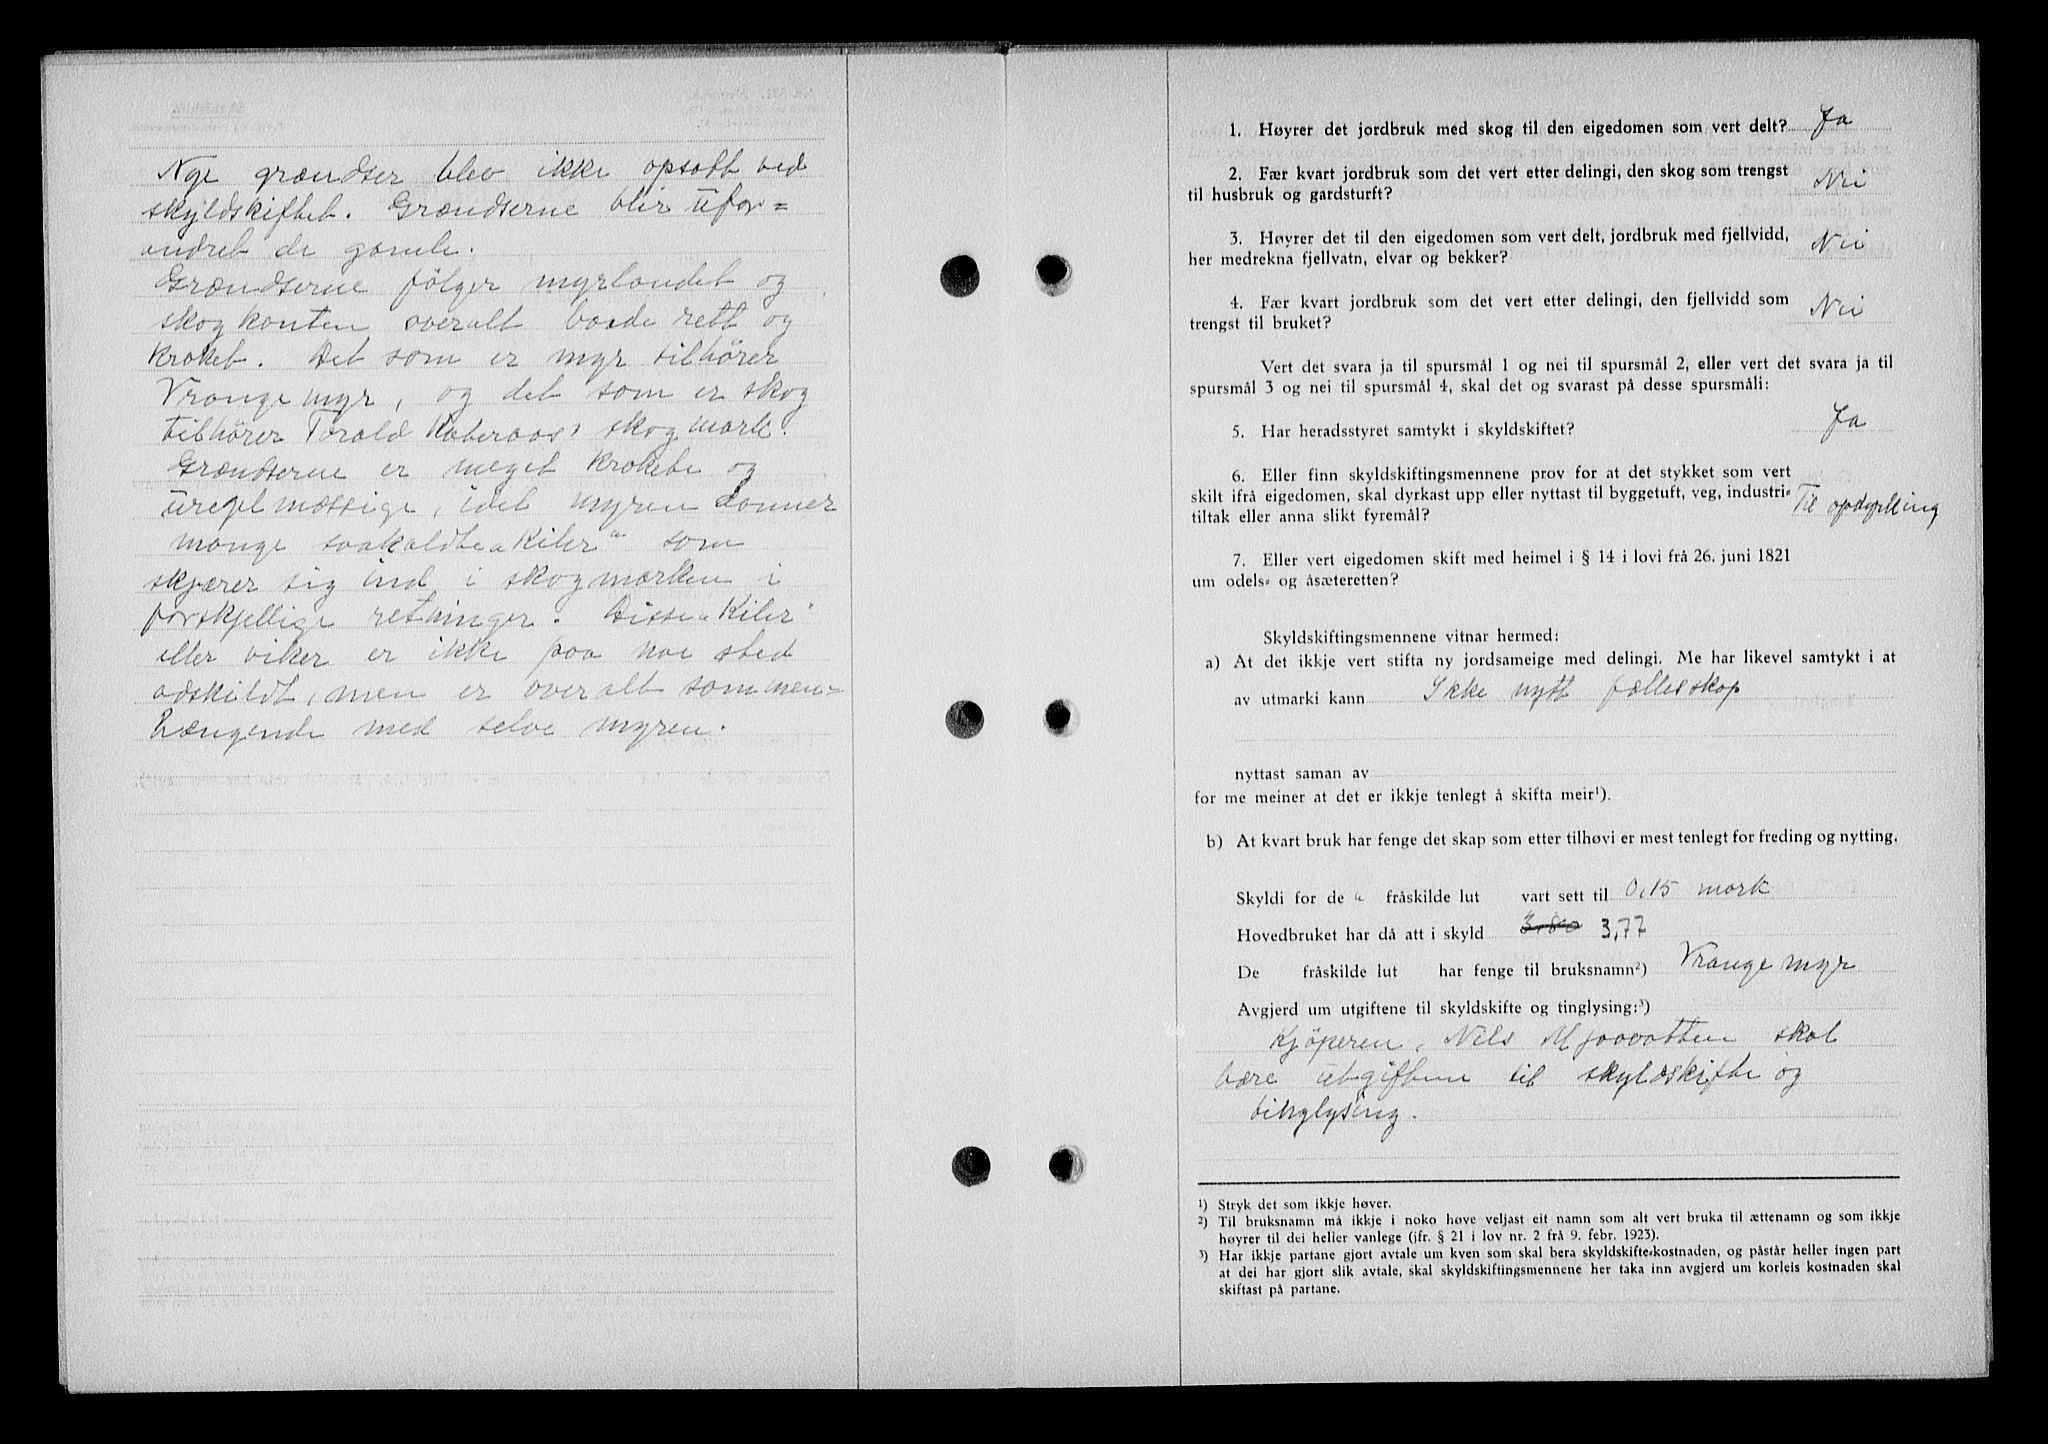 Nye grændser blev ikke opsatt ved
skyldskiftet. Grændserne blir ufor=
andret de gamle.
Grændserne følger myrlandet og
skogkanten overalt baade rett og
kroket. Det som er myr tilhører
Vrangemyr, og det som er skog
tilhører Torald Kaberaas' skogmark.
Grændserne er meget krokete og
uregelmæssige, idet myren danner
mange saakaldte "Kiler" som
skjærer sig ind i skogmarken i
forskjellige retninger. Disse "Kiler"
eller viker er ikke paa noe sted
adskildt, men er overalt sammen=
hængende med selve myren.
1. Høyrer det jordbruk med skog til den eigedomen som vert delt? Ja
2. Fær kvart jordbruk som det vert etter delingi, den skog som trengst
til husbruk og gardsturft? Nei
3. Høyrer det til den eigedomen som vert delt, jordbruk med fjellvidd,
her medrekna fjellvatn, elvar og bekker? Nei
4. Fær kvart jordbruk som det vert etter delingi, den fjellvidd som
trengst til bruket? Nei
Vert det svara ja til spursmål 1 og nei til spursmål 2, eller vert det svara ja til
spursmål 3 og nei til spursmål 4, skal det og svarast på desse spursmåli:
5. Har heradsstyret samtykt i skyldskiftet? Ja
6. Eller finn skyldskiftingsmennene prov for at det stykket som vert
skilt ifrå eigedomen, skal dyrkast upp eller nyttast til byggetuft, veg, industri-
tiltak eller anna slikt fyremål? Til opdyrkning
7. Eller vert eigedomen skift med heimel i § 14 i lovi frå 26. juni 1821
um odels- og åsæteretten?
Skyldskiftingsmennene vitnar hermed:
a) At det ikkje vert stifta ny jordsameige med delingi. Me har likevel samtykt i at
av utmarki kann Ikke nytt fællesskap
nyttast saman av
for me meiner at det er ikkje tenlegt å skifta meir¹).
b) At kvart bruk har fenge det skap som etter tilhøvi er mest tenlegt for freding og nytting.
Skyldi for de fråskilde lut vart sett til 0,15 mark
Hovedbruket har då att i skyld 3,80 3,77
De fråskilde lut har fenge til bruksnamn²) Vrangemyr
Avgjerd um utgiftene til skyldskifte og tinglysing:³)
Kjøperen, Nils Mjaavatten skal
bære utgiftene til skyldskifte og
tinglysing.
¹) Stryk det som ikkje høver.
²) Til bruksnamn må ikkje i noko høve veljast eit namn som alt vert bruka til ættenamn og som ikkje
høyrer til dei heller vanlege (jfr. § 21 i lov nr. 2 frå 9. febr. 1923).
³) Har ikkje partane gjort avtale um kven som skal bera skyldskifte-kostnaden, og påstår heller ingen part
at dei har gjort slik avtale, skal skyldskiftingsmennene her taka inn avgjerd um korleis kostnaden skal
skiftast på partane.